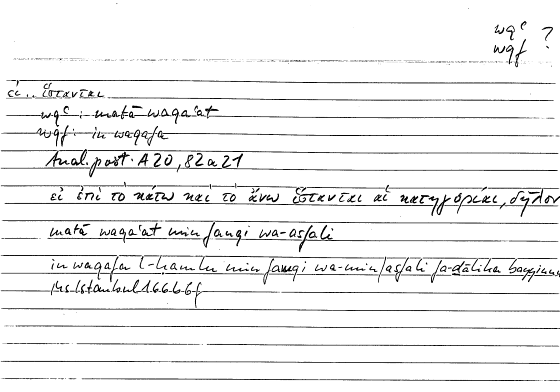 wqʿ ?
wqf
εἰ .. ἵστανται
wqʿ : matā waqaʿat
wqf : in waqafa
Anal. post. A 20, 82 a 21
εἰ ἐπὶ τὸ κάτω καὶ τὸ ἄνω ἵστανται αἱ κατηγορίαι, δῆλον
matā waqaʿat min fauqi wa-asfali
in waqafa l-ḥamlu min fauqi wa-min asfali fa-ḏālika bayyinun
Hs Istanbul